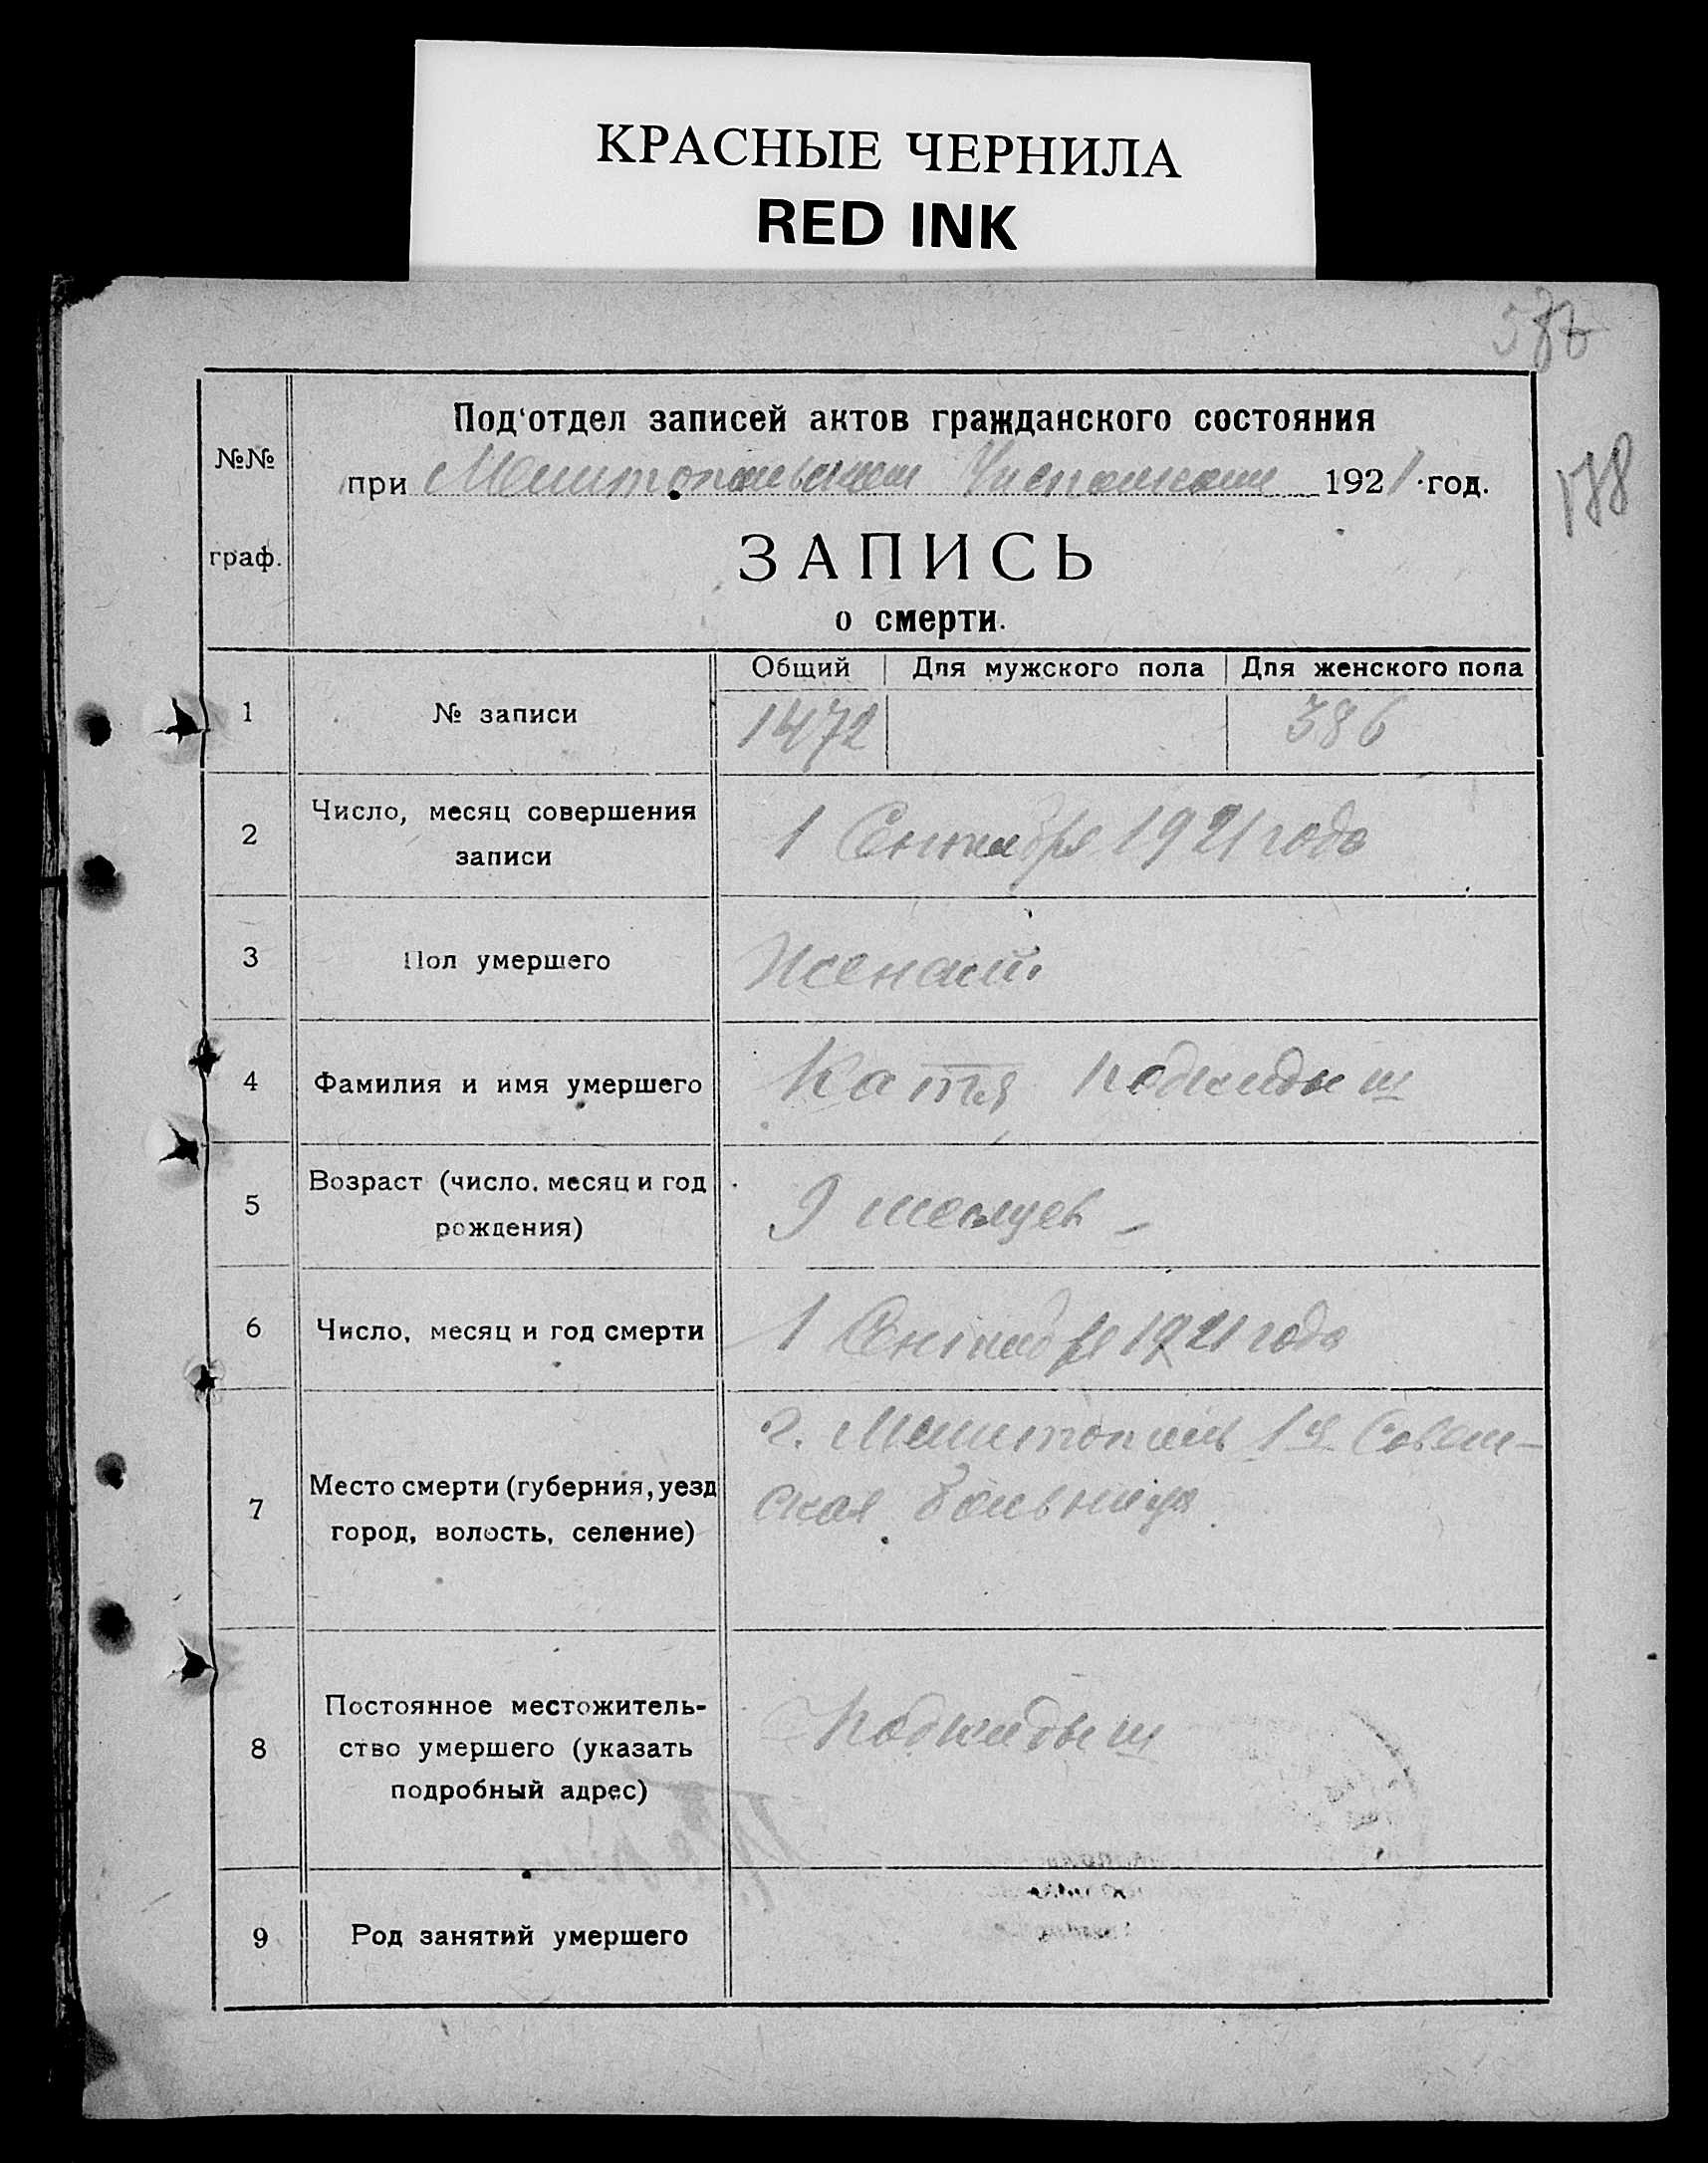 КРАСНЫЕ ЧЕРНИЛА
RED INK
Под'отдел записей актов гражданского состояния
№№
при Мелитопольском 1921 год.
178
граф.
ЗАПИСЬ
о смерти.
Общий Для мужского пола Для женского пола
1 № записи 1472 386
2 Число, месяц совершения
записи
1 Сентября 1921 года
3 Пол умершего Женский
4 Фамилия и имя умершего Катя Подкидыш
5 Возраст (число, месяц и год
рождения)
9 месяцев
6 Число, месяц и год смерти 1 Сентября 1921 года
7 Место смерти (губерния, уезд
город, волость, селение)
г. Мелитополь 1я Совет-
ская больница
8 Постоянное местожитель-
ство умершего (указать
подробный адрес)
Подкидыш
9 Род занятий умершего